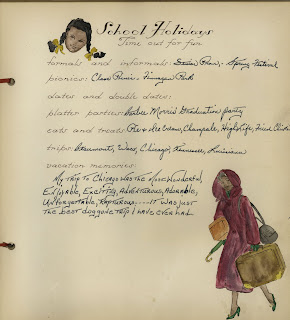 School Holidays
Time out for fun
formals and informals: Senior Prom, - Spring Festival
picnics: Class Picnic - Finnegan Park
dates and double dates:
platter parties: Morris Graduation party
eats and treats: Ice Cream, Champale, High Life, Fried Chicken
trips: Beaumont, Waco, Chicago, Tennessee, Louisiana
vacation memories:
My trip to Chicago was the most Wonderful,
Enjoyable, Exciting, Adventurous, Adorable,
Unforgettable, Rapturous.....It was just
the best doggone trip I have ever had.